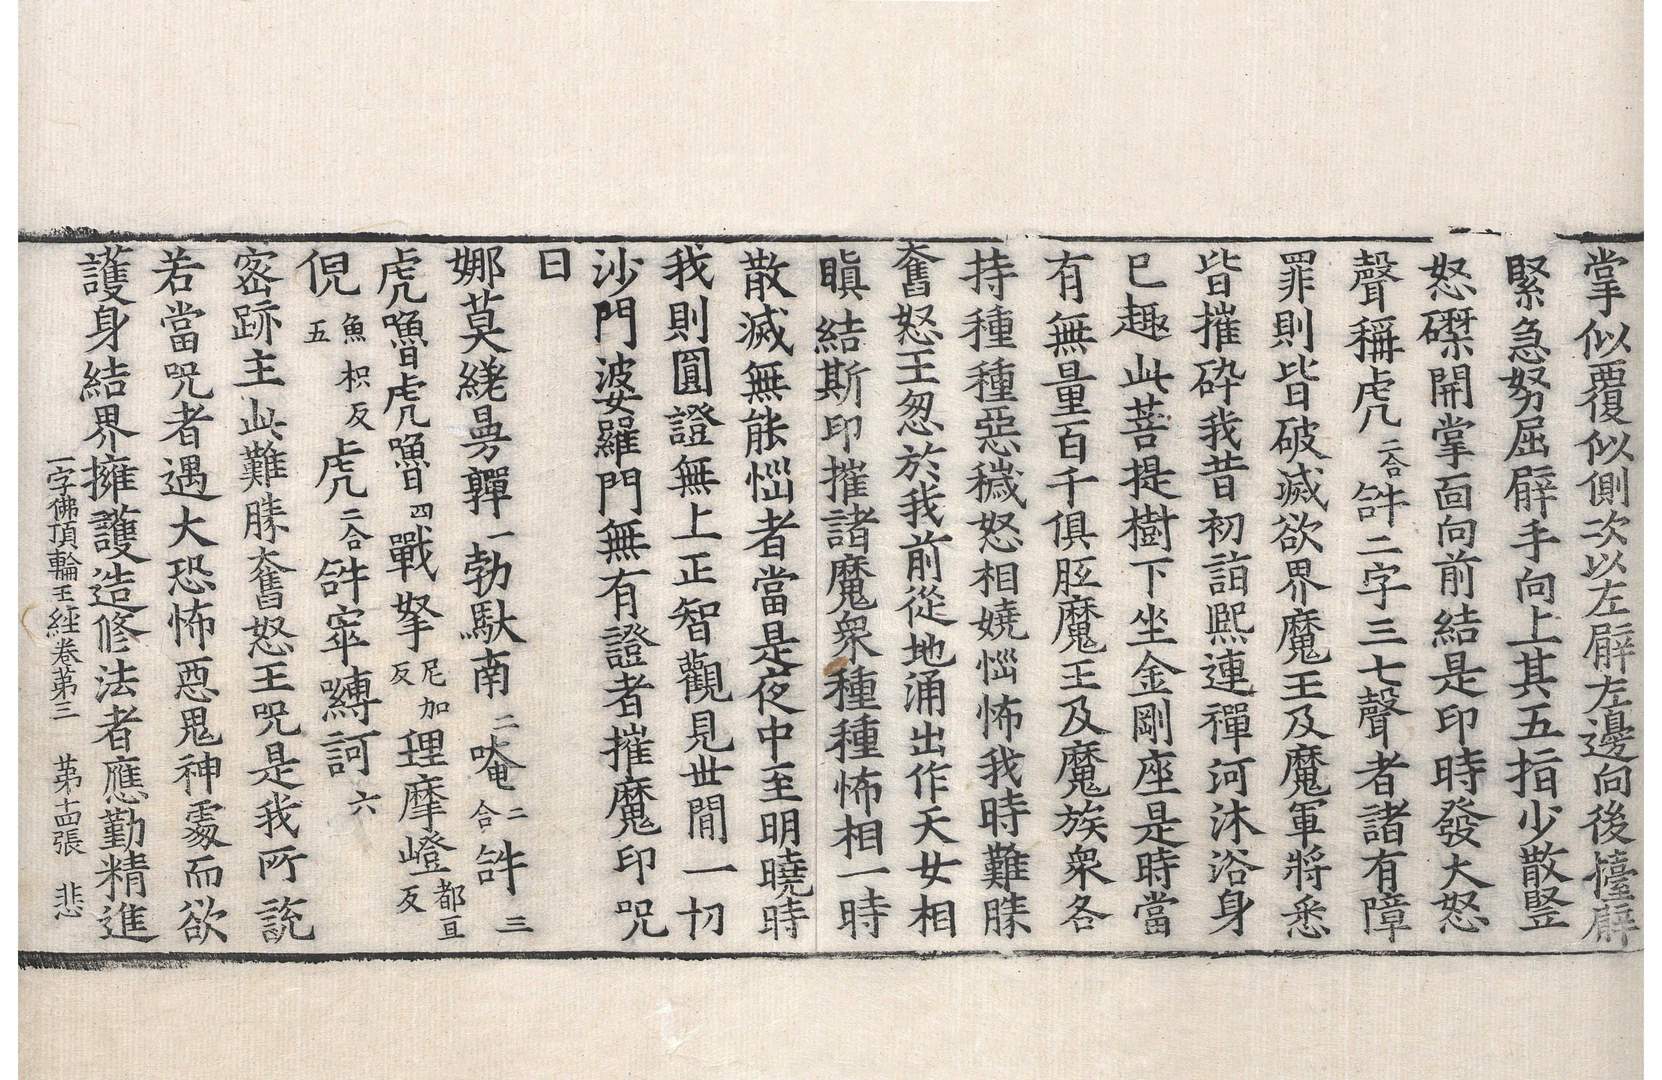 掌似覆似側次以左臂左邊向後擡臂
緊急努屈臂手向上其五指少散豎
怒磔開掌面向前結是印時發大怒
聲稱虎二合𤙖二字三七聲者諸有障
罪則皆破滅欲界魔王及魔軍將悉
皆摧碎我昔初詣熙連禪河沐浴身
已趣此菩提樹下坐金剛座是時當
有無量百千俱胝魔王及魔族衆各
持種種惡穢怒相嬈惱怖我時難勝
奮怒王忽於我前從地涌出作天女相
瞋結斯印摧諸魔衆種種怖相一時
散滅無能惱者當是夜中至明曉時
我則圓證無上正智觀見世間一切
沙門婆羅門無有證者摧魔印呪
曰
娜莫繞曼鼾一勃馱南二唵二合𤙖三
虎嚕虎嚕四戰拏尼加反理摩嶝都亘反
倪魚枳反五虎二合𤙖窣嚩訶六
密跡主此難勝奮怒王呪是我所說
若當呪者遇大恐怖惡鬼神處而欲
護身結界擁護造修法者應勤精進
一字佛頂輪王經卷第三　第十四張　悲